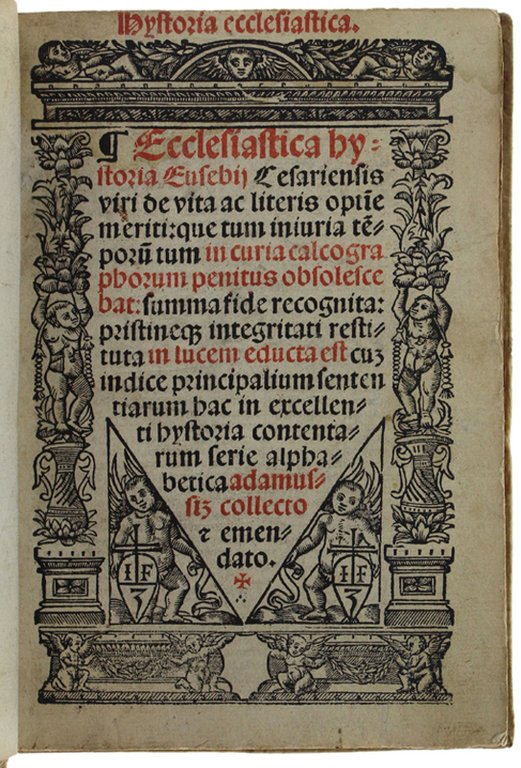 Hystoria ecclesiastica.
¶ Ecclesiastica hy⸗
storia Eusebij Cesariensis
viri de vita ac literis optīe
meriti:que tum iniuria tē⸗
porū tum in curia calcogra
phorum penitus obsolesce
bat: summa fide recognita:
pristineqꝫ integritati resti⸗
tuta in lucem educta est cuꝫ
indice principalium senten
tiarum hac in excellen⸗
ti hystoria contenta⸗
rum serie alpha⸗
betica adamus⸗
siꝫ collecto
⁊ emen⸗
dato.
I F
I F